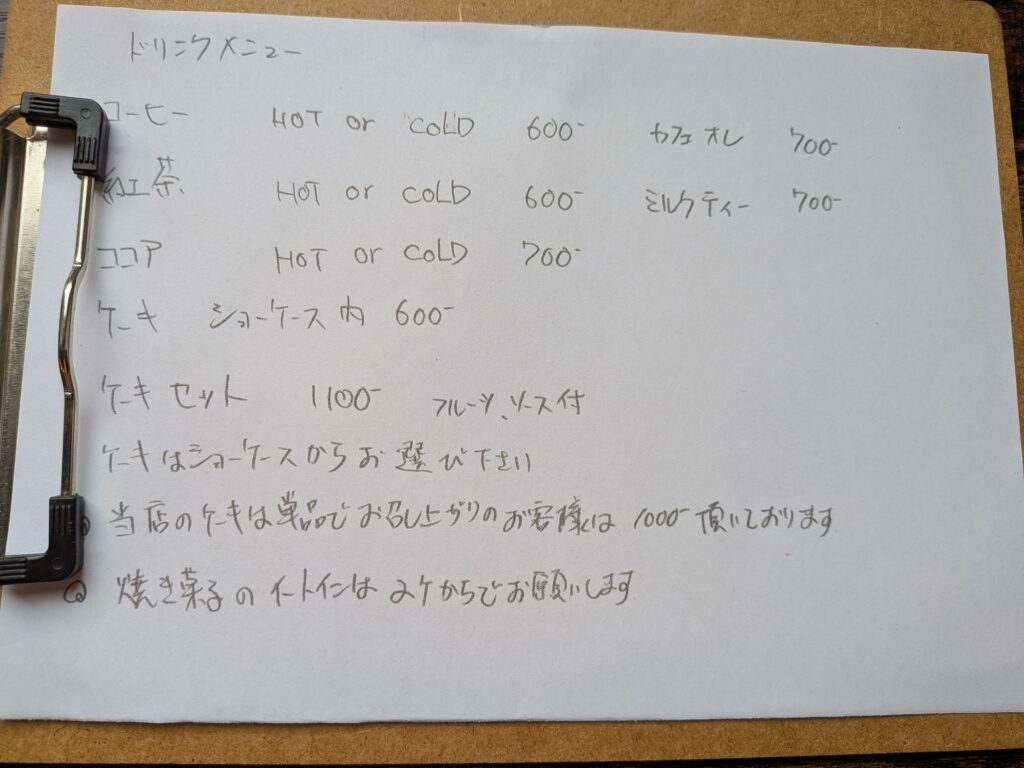 ドリンクメニュー
コーヒー HOT or COLD 600- カフェオレ 700-
紅茶 HOT or COLD 600- ミルクティー 700-
ココア HOT or COLD 700-
ケーキ ショーケース内 600-
ケーキセット 1100- フルーツ、ソース付
ケーキはショーケースからお選び下さい
当店のケーキは単品でお召し上がりのお客様は 1000- 頂いております
焼き菓子のイートインは 2ケからでお願いします